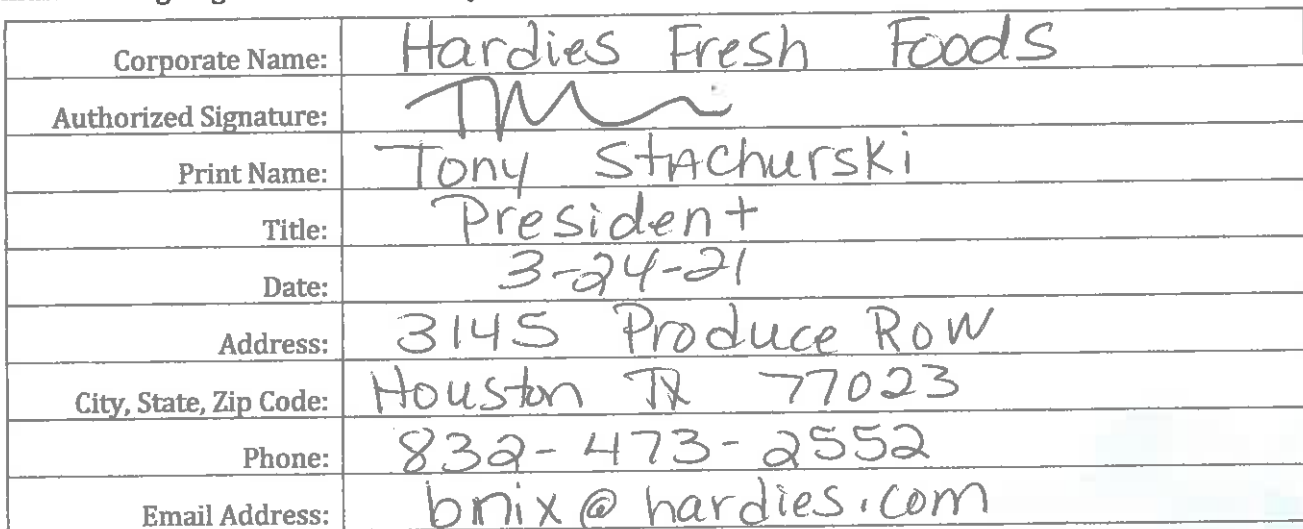 Corporate Name: Hardies Fresh Foods
Authorized Signature:
Print Name: Tony Stachurski
Title: President
Date: 3-24-21
Address: 3145 Produce Row
City, State, Zip Code: Houston TX 77023
Phone: 832-473-2552
Email Address: bnix@hardies.com